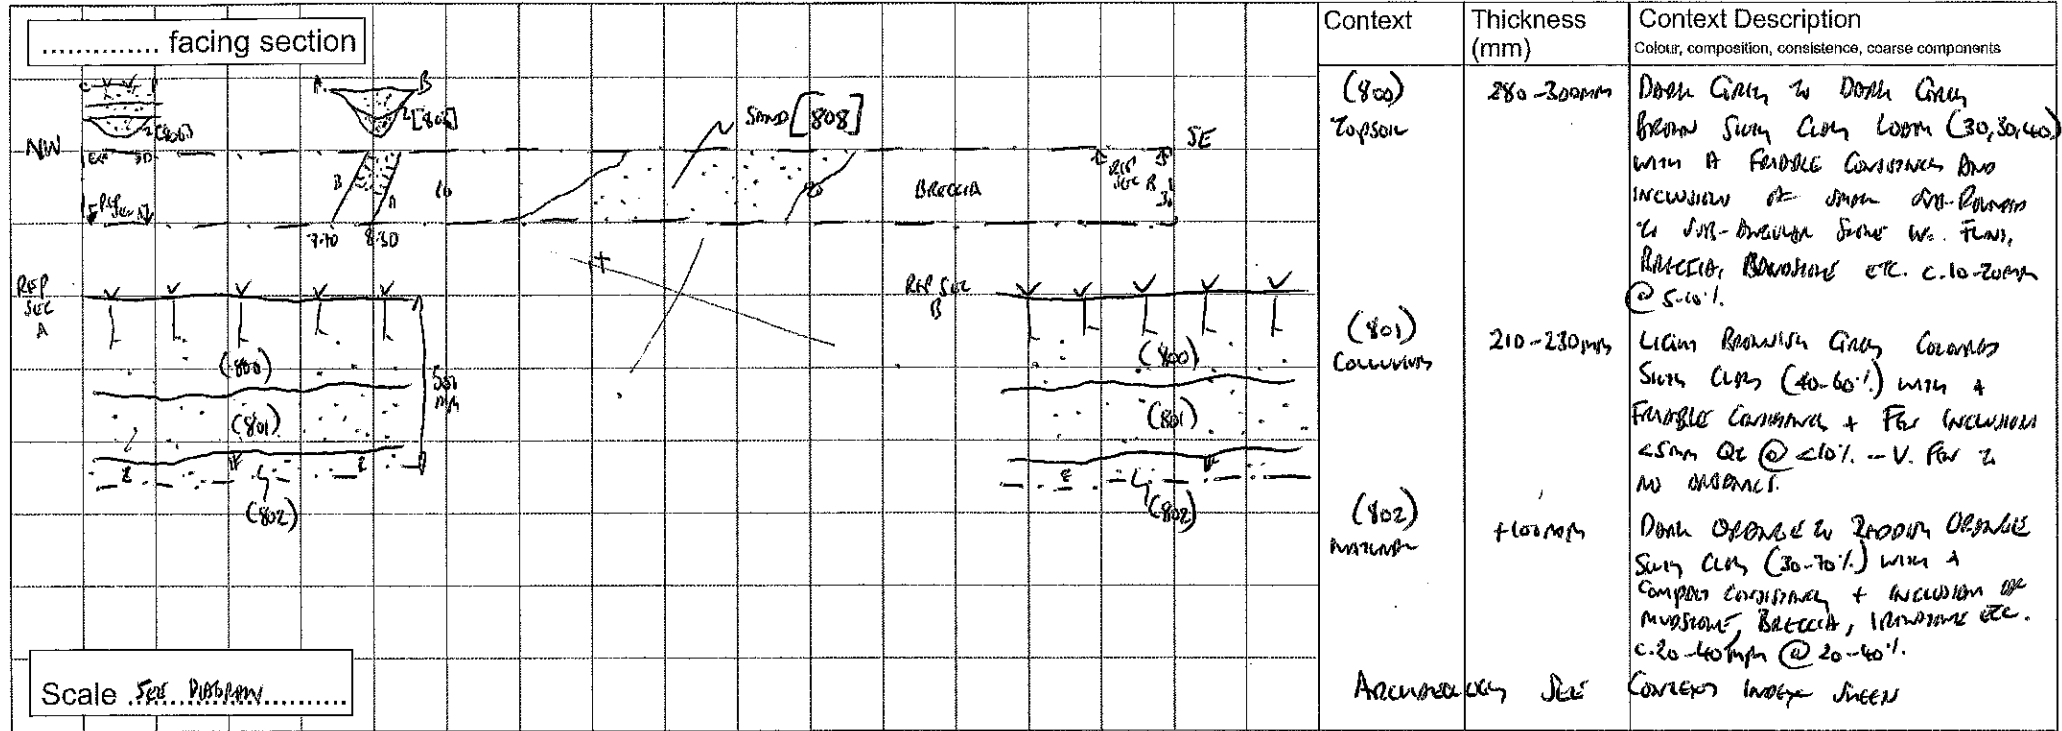 .............. facing section
A
B
[806]
NW
SAND [808]
SE
B
A
BRECCIA
REP SEC B
30
7.70
8.30
REP
SEC
A
REP SEC
B
(800)
(801)
(802)
(800)
(801)
(802)
Scale SEE DIAGRAM
Context
Thickness
(mm)
Context Description
Colour, composition, consistence, coarse components
(800)
TOPSOIL
280-300mm
DARK GREY TO DARK GREY
BROWN SILTY CLAY LOAM (30,30,40)
WITH A FRIABLE CONSISTENCY AND
INCLUSION OF SMALL SUB-ROUNDED
TO SUB-ANGULAR STONE INC. FLINT,
BRECCIA, SANDSTONE ETC. c.10-20mm
@ 5-10%.
(801)
COLLUVIUM
210-230mm
LIGHT BROWNISH GREY COLOURED
SILTY CLAY (40-60%) WITH A
FRIABLE CONSISTENCY + FEW INCLUSIONS
<5mm @ <10%. - V. FEW TO
NO
(802)
NATURAL
+100mm
DARK ORANGE TO REDDISH ORANGE
SILTY CLAY (30-70%) WITH A
COMPACT CONSISTENCY + INCLUSION OF
MUDSTONE, BRECCIA, IRONSTONE ETC.
c.20-40mm @ 20-40%.
ARCHAEOLOGY SEE CONTEXT INDEX SHEET